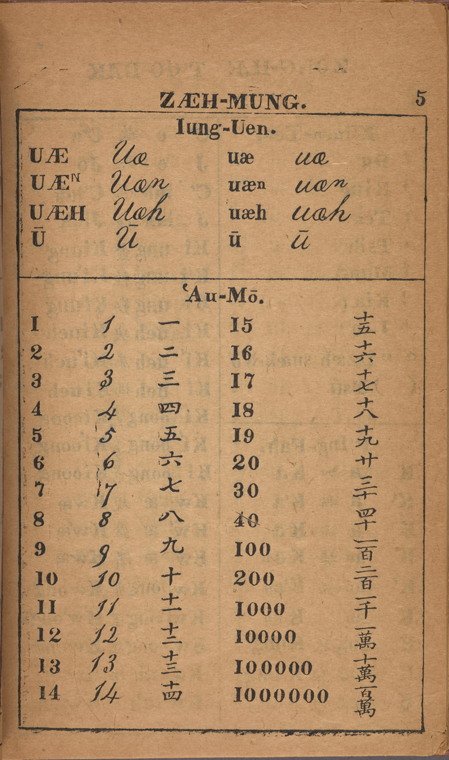 ZÆH-MUNG. 5
Iung-Uen.
UÆ Uæ uæ uæ
UÆᴺ Uæn uæn uæn
UÆH Uæh uæh uæh
Ū Ū ū ū
ʻAu-Mō.
1 1 一 15 十五
2 2 二 16 十六
3 3 三 17 十七
4 4 四 18 十八
5 5 五 19 十九
6 6 六 20 廿
7 7 七 30 三十
8 8 八 40 四十
9 9 九 100 一百
10 10 十 200 二百
11 11 十一 1000 一千
12 12 十二 10000 一萬
13 13 十三 100000 十萬
14 14 十四 1000000 百萬